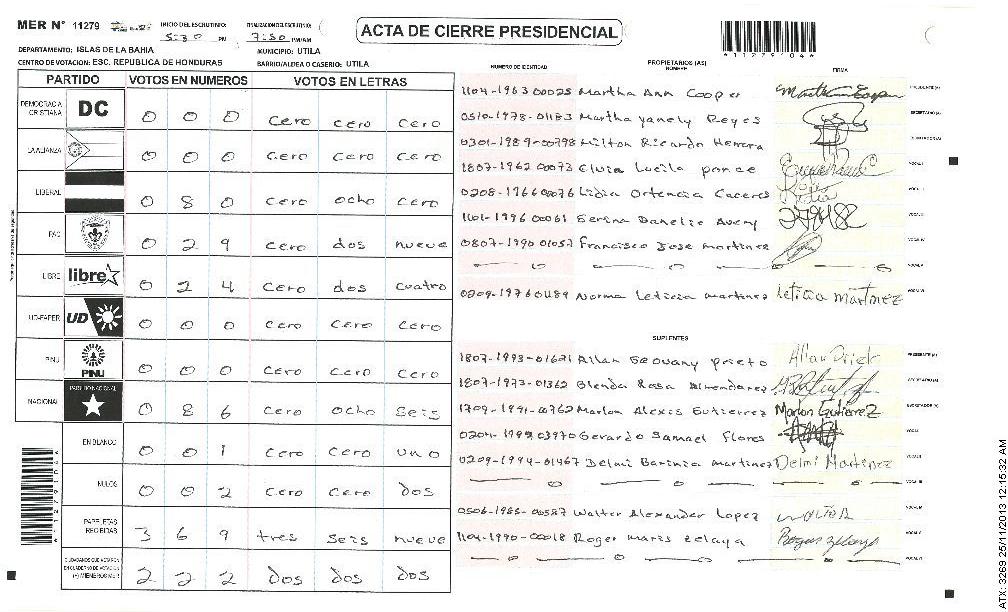 MER N° 11279
INICIO DEL ESCRUTINIO: 5:30 PM
FINALIZACION DEL ESCRUTINIO: 7:50 PM/AM
ACTA DE CIERRE PRESIDENCIAL
*11279104*
DEPARTAMENTO: ISLAS DE LA BAHIA
MUNICIPIO: UTILA
CENTRO DE VOTACION: ESC. REPUBLICA DE HONDURAS
BARRIO/ALDEA O CASERIO: UTILA
PARTIDO VOTOS EN NUMEROS VOTOS EN LETRAS
DEMOCRACIA CRISTIANA DC 0 0 0 cero cero cero
LA ALIANZA 0 0 0 cero cero cero
LIBERAL 0 8 0 cero ocho cero
PAC 0 2 9 cero dos nueve
LIBRE libre 0 2 4 cero dos cuatro
UD-FAPER UD 0 0 0 cero cero cero
PINU PINU 0 0 0 cero cero cero
NACIONAL PARTIDO NACIONAL 0 8 6 cero ocho seis
EN BLANCO 0 0 1 cero cero uno
NULOS 0 0 2 cero cero dos
PAPELETAS RECIBIDAS 3 6 9 tres seis nueve
CIUDADANOS QUE VOTARON EN CUADERNO DE VOTACION (+) MIEMBROS MER 2 2 2 dos dos dos
NUMERO DE IDENTIDAD
PROPIETARIOS (AS)
NOMBRE
FIRMA
1104-1963 00025 Martha Ann Cooper PRESIDENTE(A)
0510-1978-01183 Martha yanely Reyes SECRETARIO(A)
0301-1989-00798 Milton Ricardo Herrera ESCRUTADOR(A)
1807-1962 00073 Elvia Lucila ponce VOCAL I
0208-1966 00076 Lidia Ortencia Caceres VOCAL II
1101-1996 00061 Serina Danelie Avery VOCAL III
0807-1990 01057 Francisco Jose martinez VOCAL IV
VOCAL V
0209-1976 01189 Norma Leticia martinez Leticia Martinez VOCAL VI
SUPLENTES
1807-1993-01621 Allan Geovany prieto PRESIDENTE(A)
1807-1973-01362 Glenda Rosa Almendarez SECRETARIO(A)
1709-1991-00762 Marlon Alexis Gutierrez Marlon Gutierrez ESCRUTADOR(A)
0204-1992 03970 Gerardo Samael Flores VOCAL I
0209-1994-01467 Delmi Barinia martinez Delmi Martinez VOCAL II
VOCAL III
0506-1985-00587 Walter Alexander Lopez VOCAL IV
1104-1990-00018 Roger maris zelaya VOCAL V
VOCAL VI
ATX: 3269 25/11/2013 12:15:32 AM